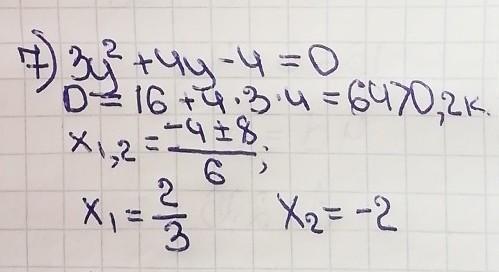 7) 3y² + 4y - 4 = 0
D = 16 + 4·3·4 = 64 > 0, 2к.
x₁,₂ = (-4 ± 8)/6;
x₁ = 2/3 x₂ = -2